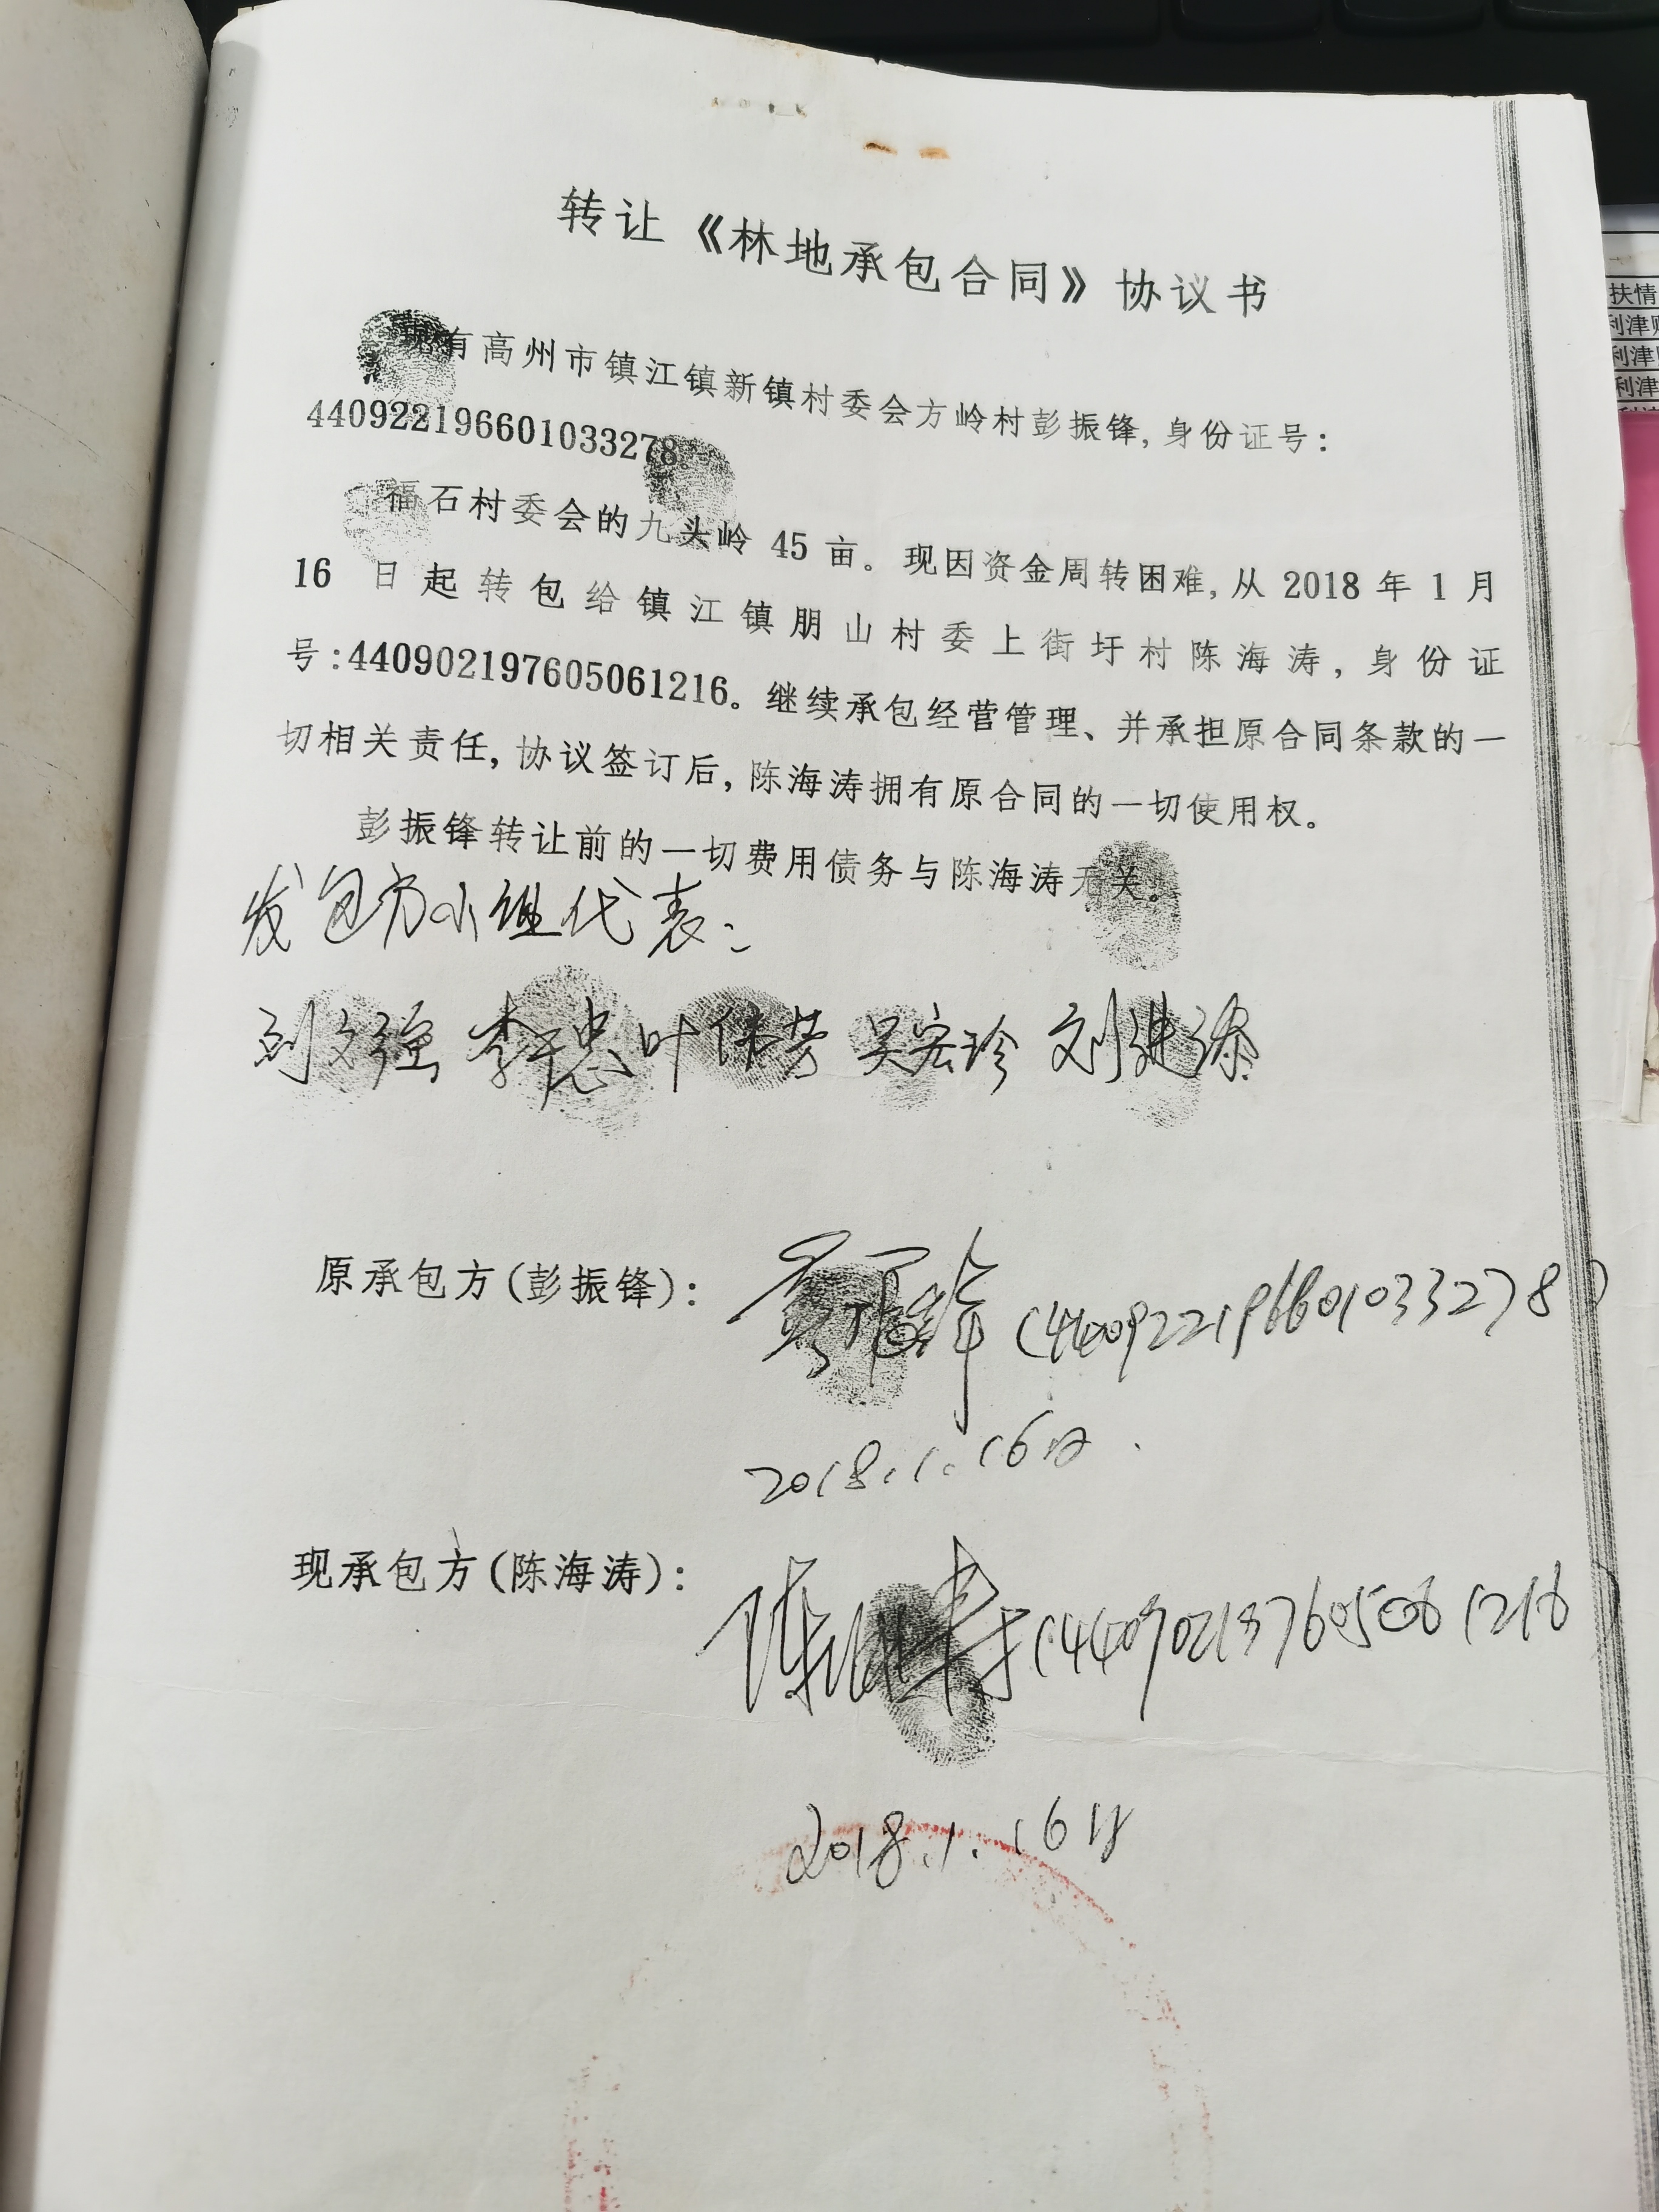 转让《林地承包合同》协议书
现有高州市镇江镇新镇村委会方岭村彭振锋,身份证号:
440922196601033278
福石村委会的九头岭 45 亩。现因资金周转困难,从 2018 年 1 月
16 日起转包给镇江镇朋山村委上街圩村陈海涛,身份证
号:440902197605061216。继续承包经营管理、并承担原合同条款的一
切相关责任,协议签订后,陈海涛拥有原合同的一切使用权。
彭振锋转让前的一切费用债务与陈海涛无关。
发包方小组代表:
刘文强 李干忠 叶伟芳 吴宏珍 刘进添
原承包方(彭振锋): 彭振锋 (440922196601033278)
2018.1.16日
现承包方(陈海涛): 陈海涛 (440902197605061216)
2018.1.16日
扶情
利津
利津
利津